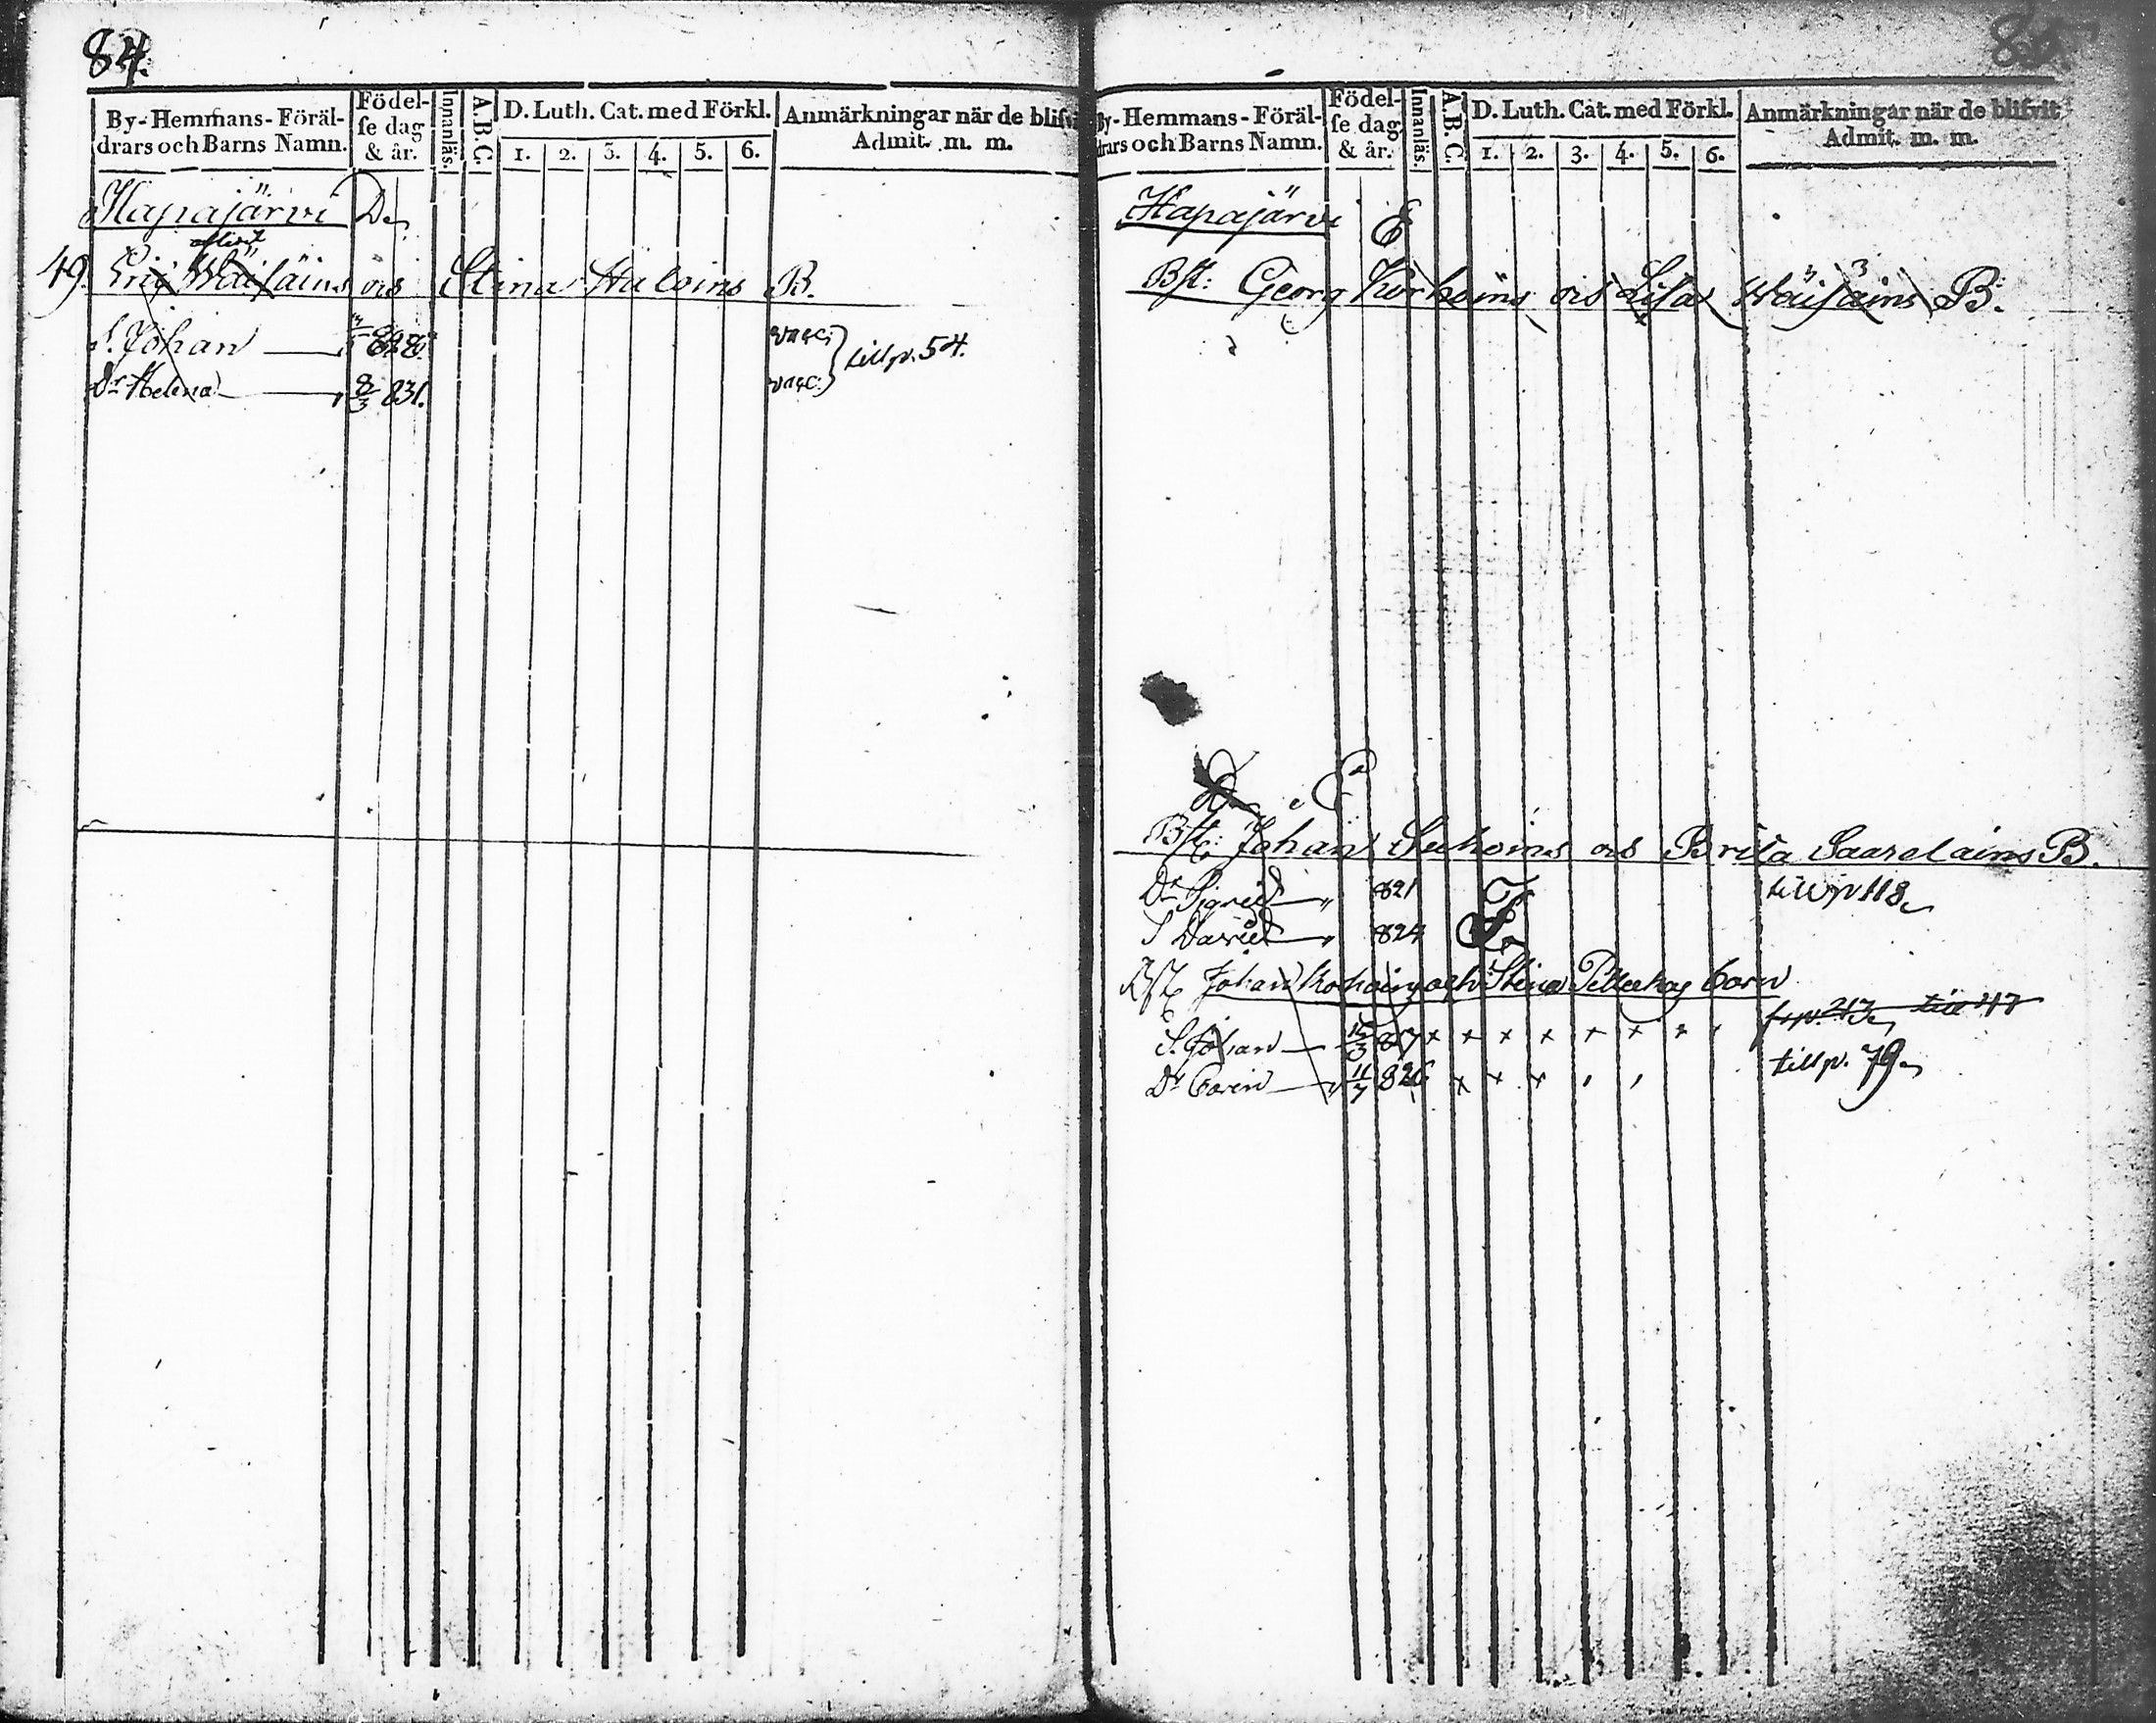 84.
By-Hemmans-Föräl-
drars och Barns Namn.
Födel-
se dag
& år.
Innanläs.
A.B.C.
D. Luth. Cat. med Förkl.
1. 2. 3. 4. 5. 6.
Anmärkningar när de blifvi
Admit. m. m.
Hapajärvi D.
49. Eric Wäisäins ocs Stina Huloins B.
S. Johan 828. vacc.
till p. 54.
Dr Helena 8/3 831. vacc.
85.
By-Hemmans-Föräl-
drars och Barns Namn.
Födel-
se dag
& år.
Innanläs.
A.B.C.
D. Luth. Cat. med Förkl.
1. 2. 3. 4. 5. 6.
Anmärkningar när de blifvit
Admit. m. m.
Hapajärvi E
Bst: Georg Korhoins ocs Lisa Wäisäins B.
Bst: Johan ocs Brita Saarelains B.
Dr Sigrid 821 till p 118
S David 824
Bst Johan och Stina Barn
fr p. 213 till 47
S. Johan 15/3 817 x x x x x x
till p. 79
Dr Carin 11/7 826 x x x